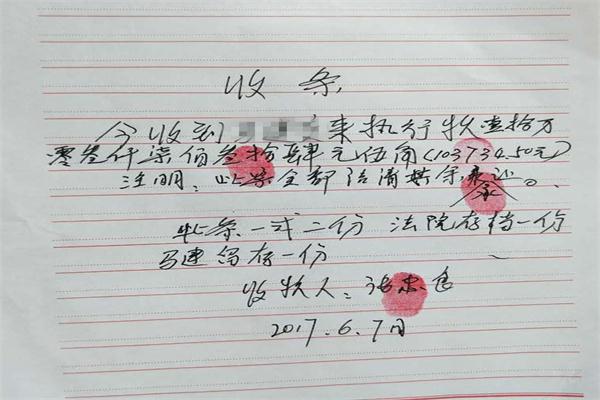 收条
今收到 案执行款壹拾万
零叁仟柒佰叁拾肆元伍角(103734.50元)
注明：此案全部结清
此条一式二份 法院存档一份
马建 存一份
收款人：张忠
2017.6.7日